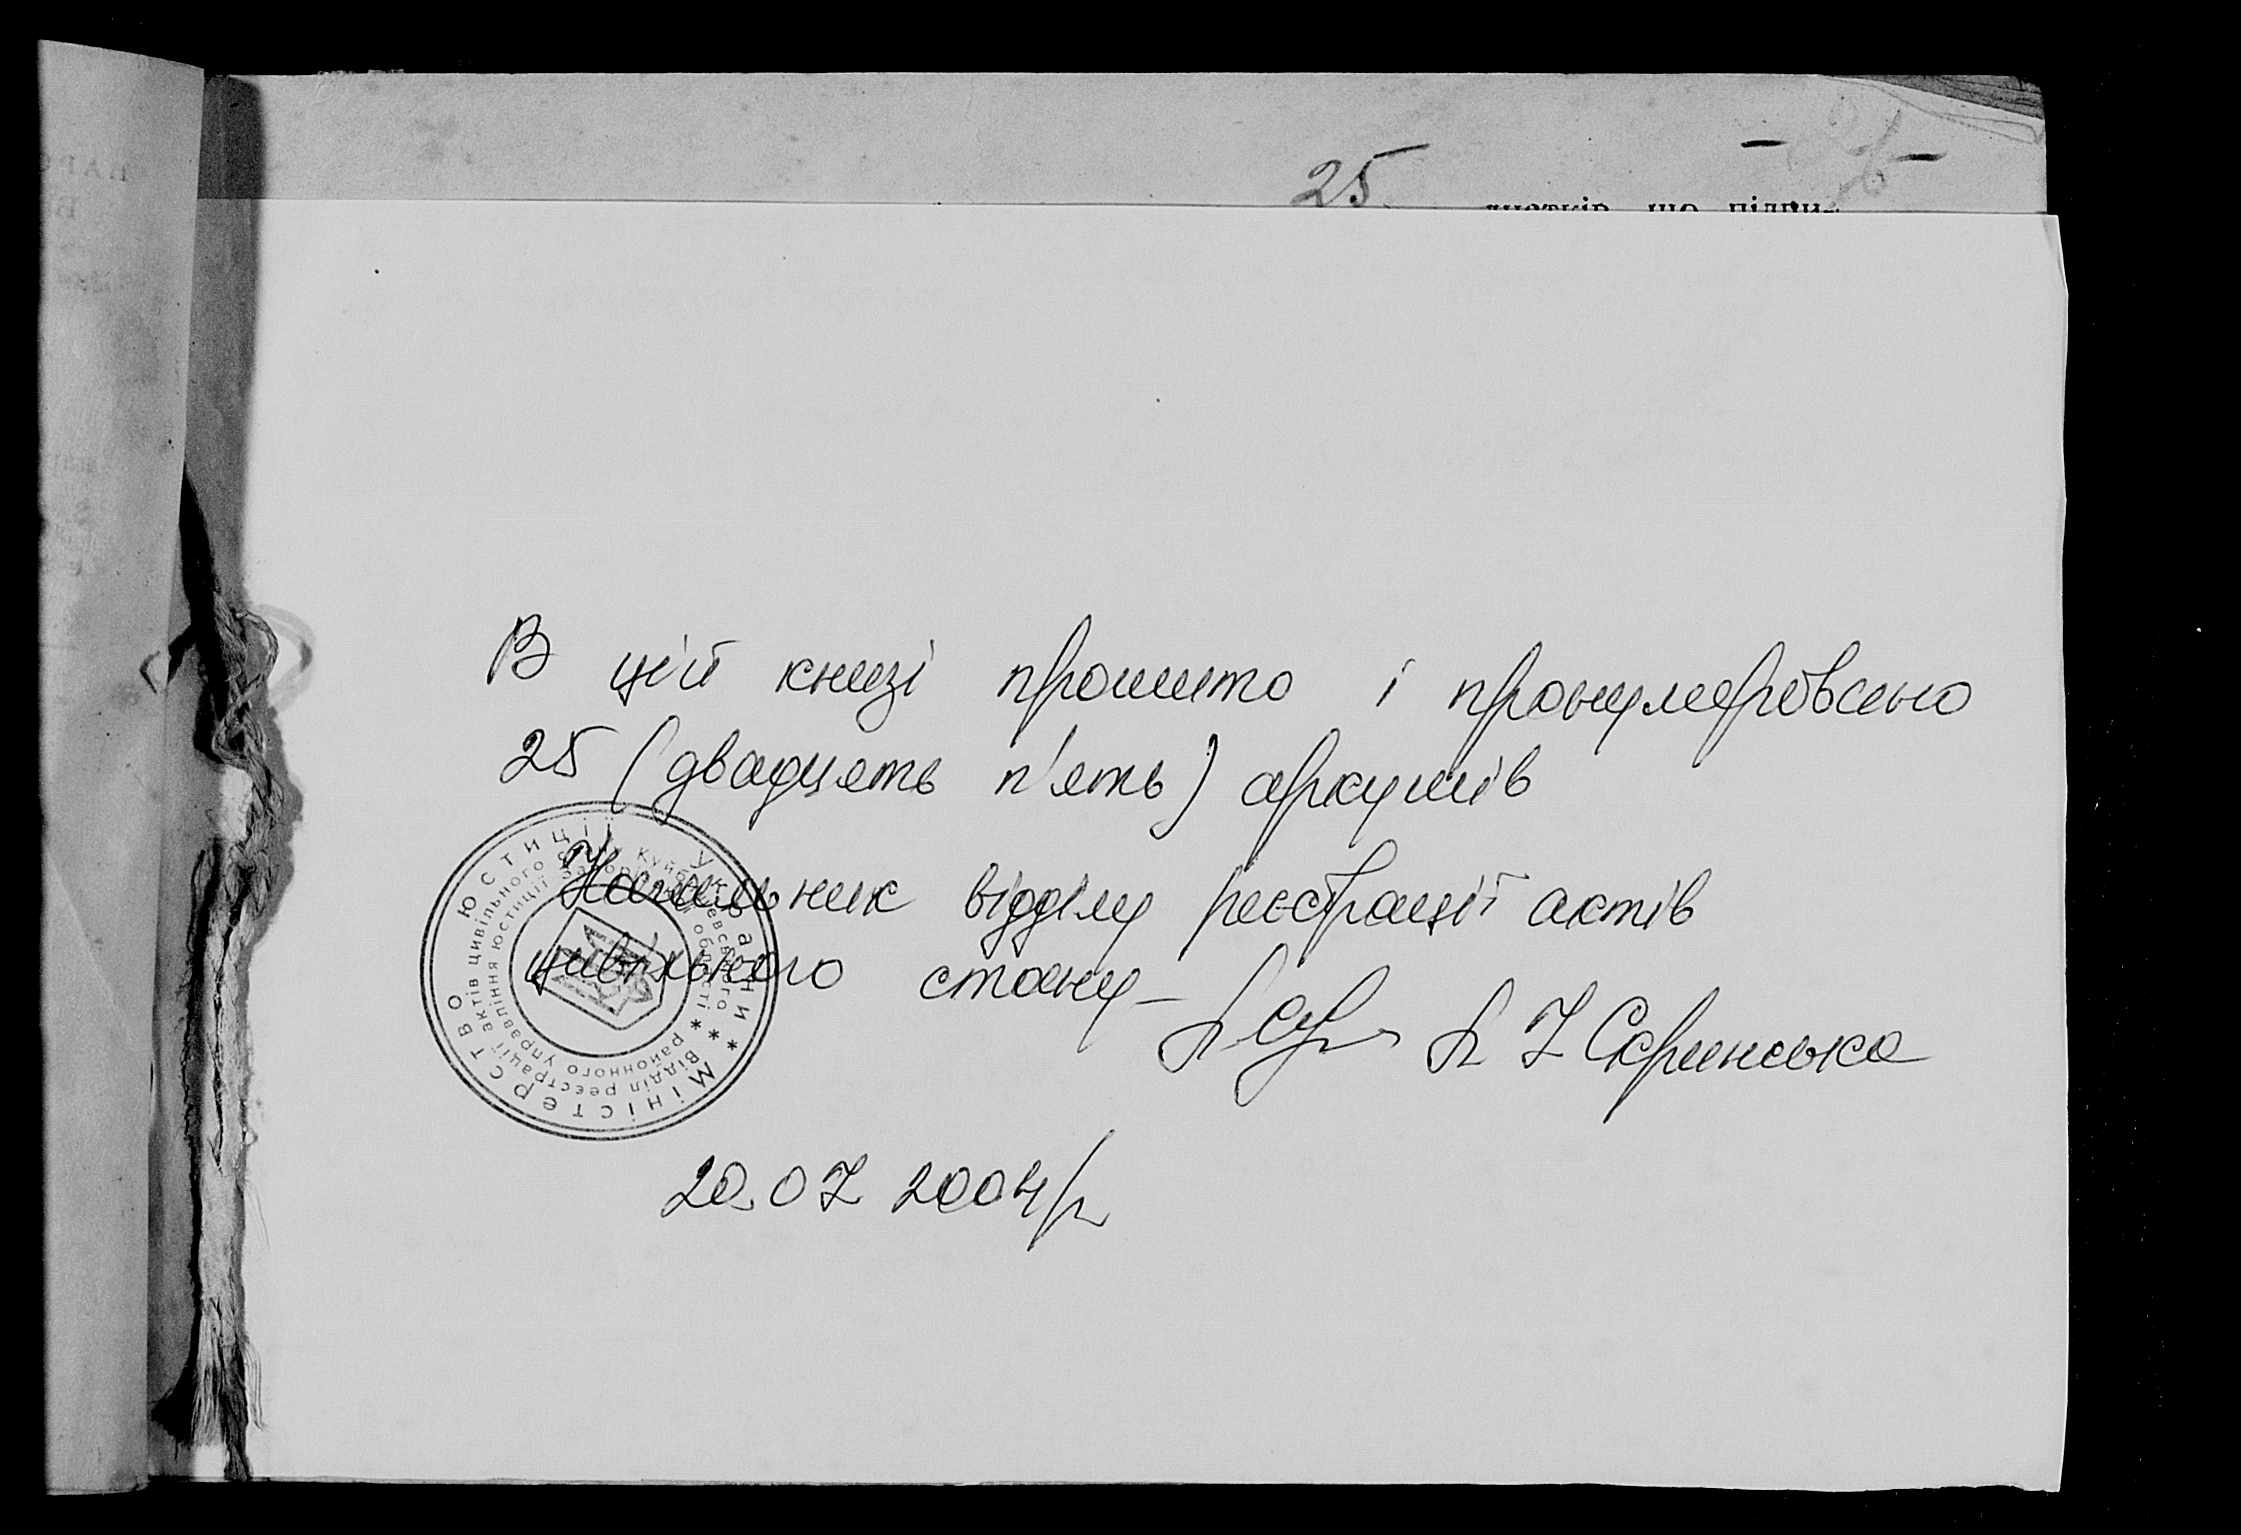 25
листків, що підпи-
В цій книзі прошито і пронумеровано
25 (двадцять п'ять) аркушів
Начальник відділу реєстрації актів
цивільного стану- Л І Скринська
20.07 2004р
Міністерство юстиції України *
Відділ реєстрації актів цивільного стану Куйбишевського *
районного управління юстиції Запорізької області *